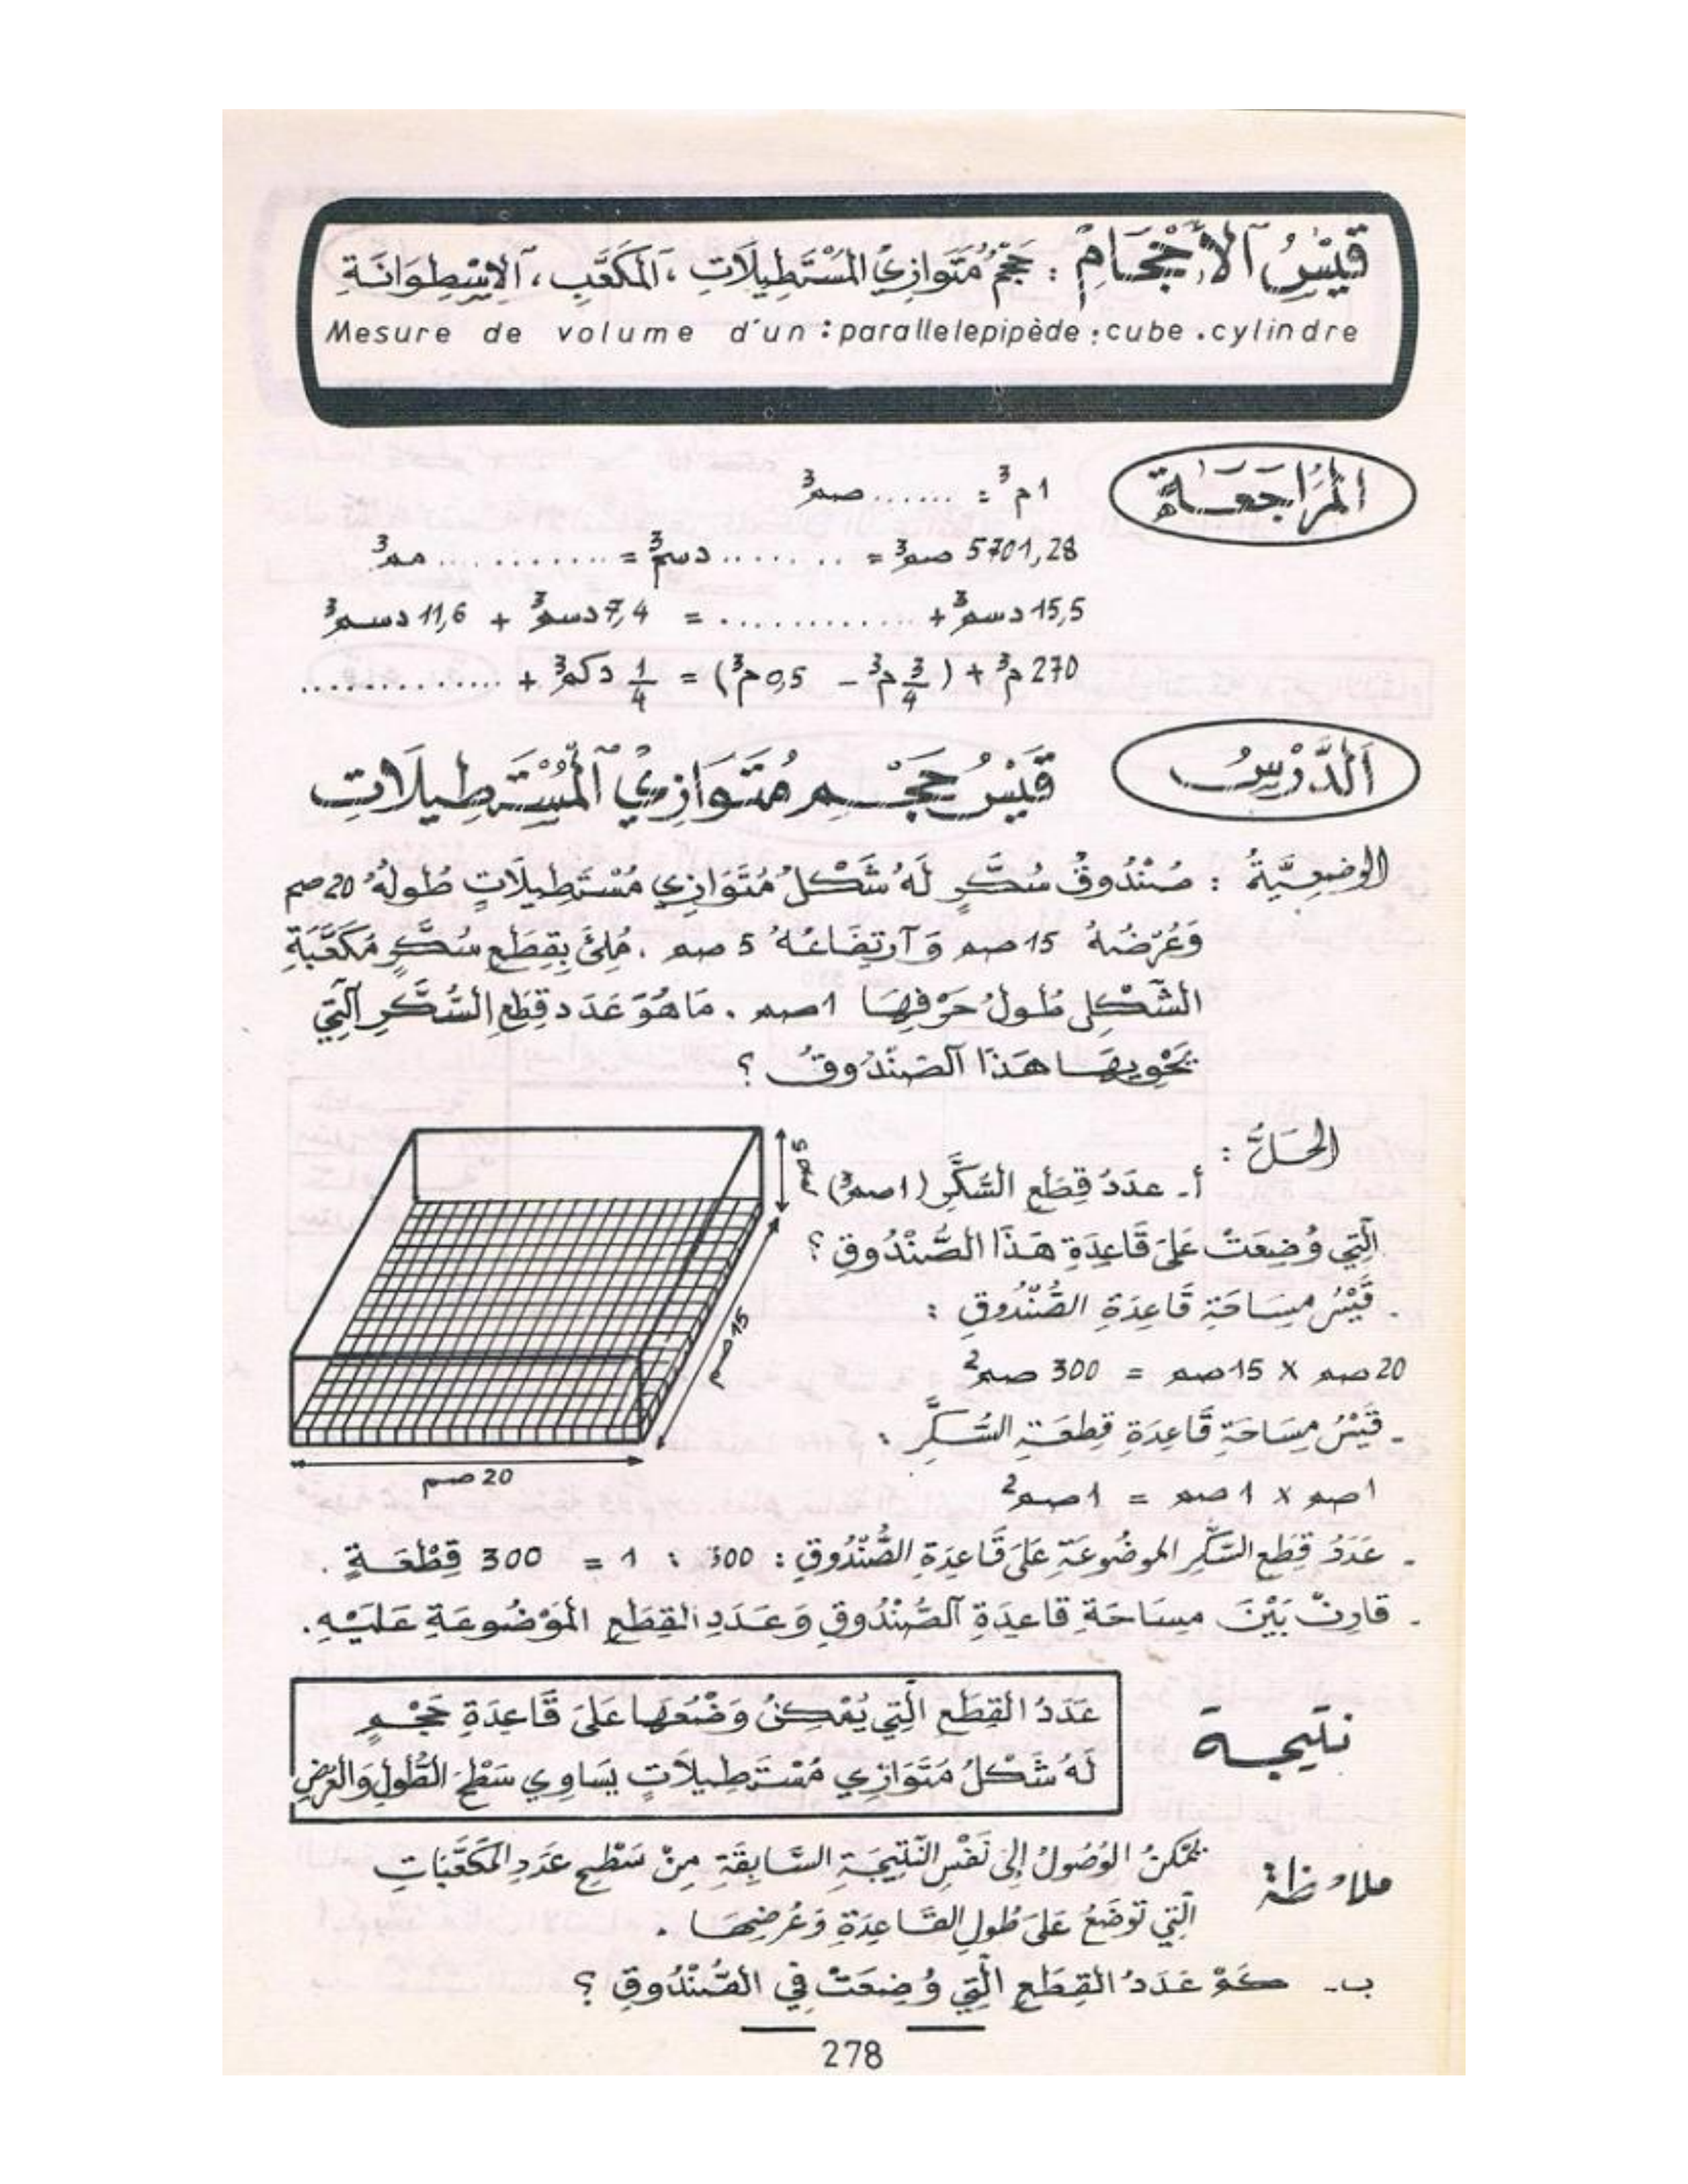 قَيْسُ ٱلْأَحْجَامِ : حَجْمُ مُتَوَازِي المُسْتَطِيلَاتِ ، ٱلمُكَعَّبِ ، ٱلاِسْطِوَانَةِ
Mesure de volume d'un : parallelepipède : cube . cylindre
المُرَاجَعَةُ
1م³ = ...... صم³
5701,28 صم³ = ........ دسم³ = ............ مم³
15,5 دسم³ + ............. = 7,4 دسم³ + 11,6 دسم³
270 م³ + ( 3/4 م³ - 0,5 م³) = 1/4 دكم³ + ..............
اَلدَّرْسُ
قَيْسُ حَجْمِ مُتَوَازِي ٱلْمُسْتَطِيلَاتِ
الوضعِيَّةُ : صُنْدُوقُ سُكَّرٍ لَهُ شَكْلُ مُتَوَازِي مُسْتَطِيلَاتٍ طُولُهُ 20 صم
وَعُرْضُهُ 15 صم وَٱرْتِفَاعُهُ 5 صم . مُلِئَ بِقِطَعِ سُكَّرٍ مُكَعَّبَةِ
الشَّكْلِ طُولُ حَرْفِهَا 1 صم . مَا هُوَ عَدَد قِطَعِ السُّكَّرِ ٱلَّتِي
يَحْوِيهَا هَذَا ٱلصُّنْدُوقُ ؟
الحَلُّ :
أ- عدَدُ قِطَعِ السُّكَّرِ (1صم³)
الَّتِي وُضِعَتْ عَلَى قَاعِدَةِ هَذَا الصُّنْدُوقِ ؟
5 صم
15 صم
20 صم
- قَيْسُ مِسَاحَةِ قَاعِدَةِ الصُّنْدُوقِ :
20 صم X 15 صم = 300 صم²
- قَيْسُ مِسَاحَةِ قَاعِدَةِ قِطعَةِ السُّكَّرِ :
1صم x 1 صم = 1 صم²
- عَدَدُ قِطَعِ السُّكَّرِ الموضُوعَةِ عَلَى قَاعِدَةِ الصُّنْدُوقِ : 300 : 1 = 300 قِطْعَةٍ .
- قارِنْ بَيْنَ مِسَاحَةِ قاعِدَةِ ٱلصُّنْدُوقِ وَعَدَدِ القِطَعِ المَوْضُوعَةِ عَلَيْهِ.
نتيجة
عَدَدُ القِطَعِ الَّتِي يُمْكِنُ وَضْعُهَا عَلَى قَاعِدَةِ حَجْمٍ
لَهُ شَكْلُ مُتَوَازِي مُسْتَطِيلَاتٍ يُسَاوِي سَطْحَ الطُّولِ وَالعَرْضِ
ملاحظة
يُمْكِنُ الوُصُولُ إِلَى نَفْسِ النَّتِيجَةِ السَّابِقَةِ مِنْ سَطْحِ عَدَدِ المُكَعَّبَاتِ
الَّتِي تُوضَعُ عَلَى طُولِ القَاعِدَةِ وَعُرْضِهَا .
ب- كَمْ عَدَدُ القِطَعِ الَّتِي وُضِعَتْ فِي الصُّنْدُوقِ ؟
278